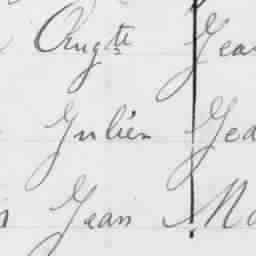 Augtte Jea
Julien Jea
Jean Ma